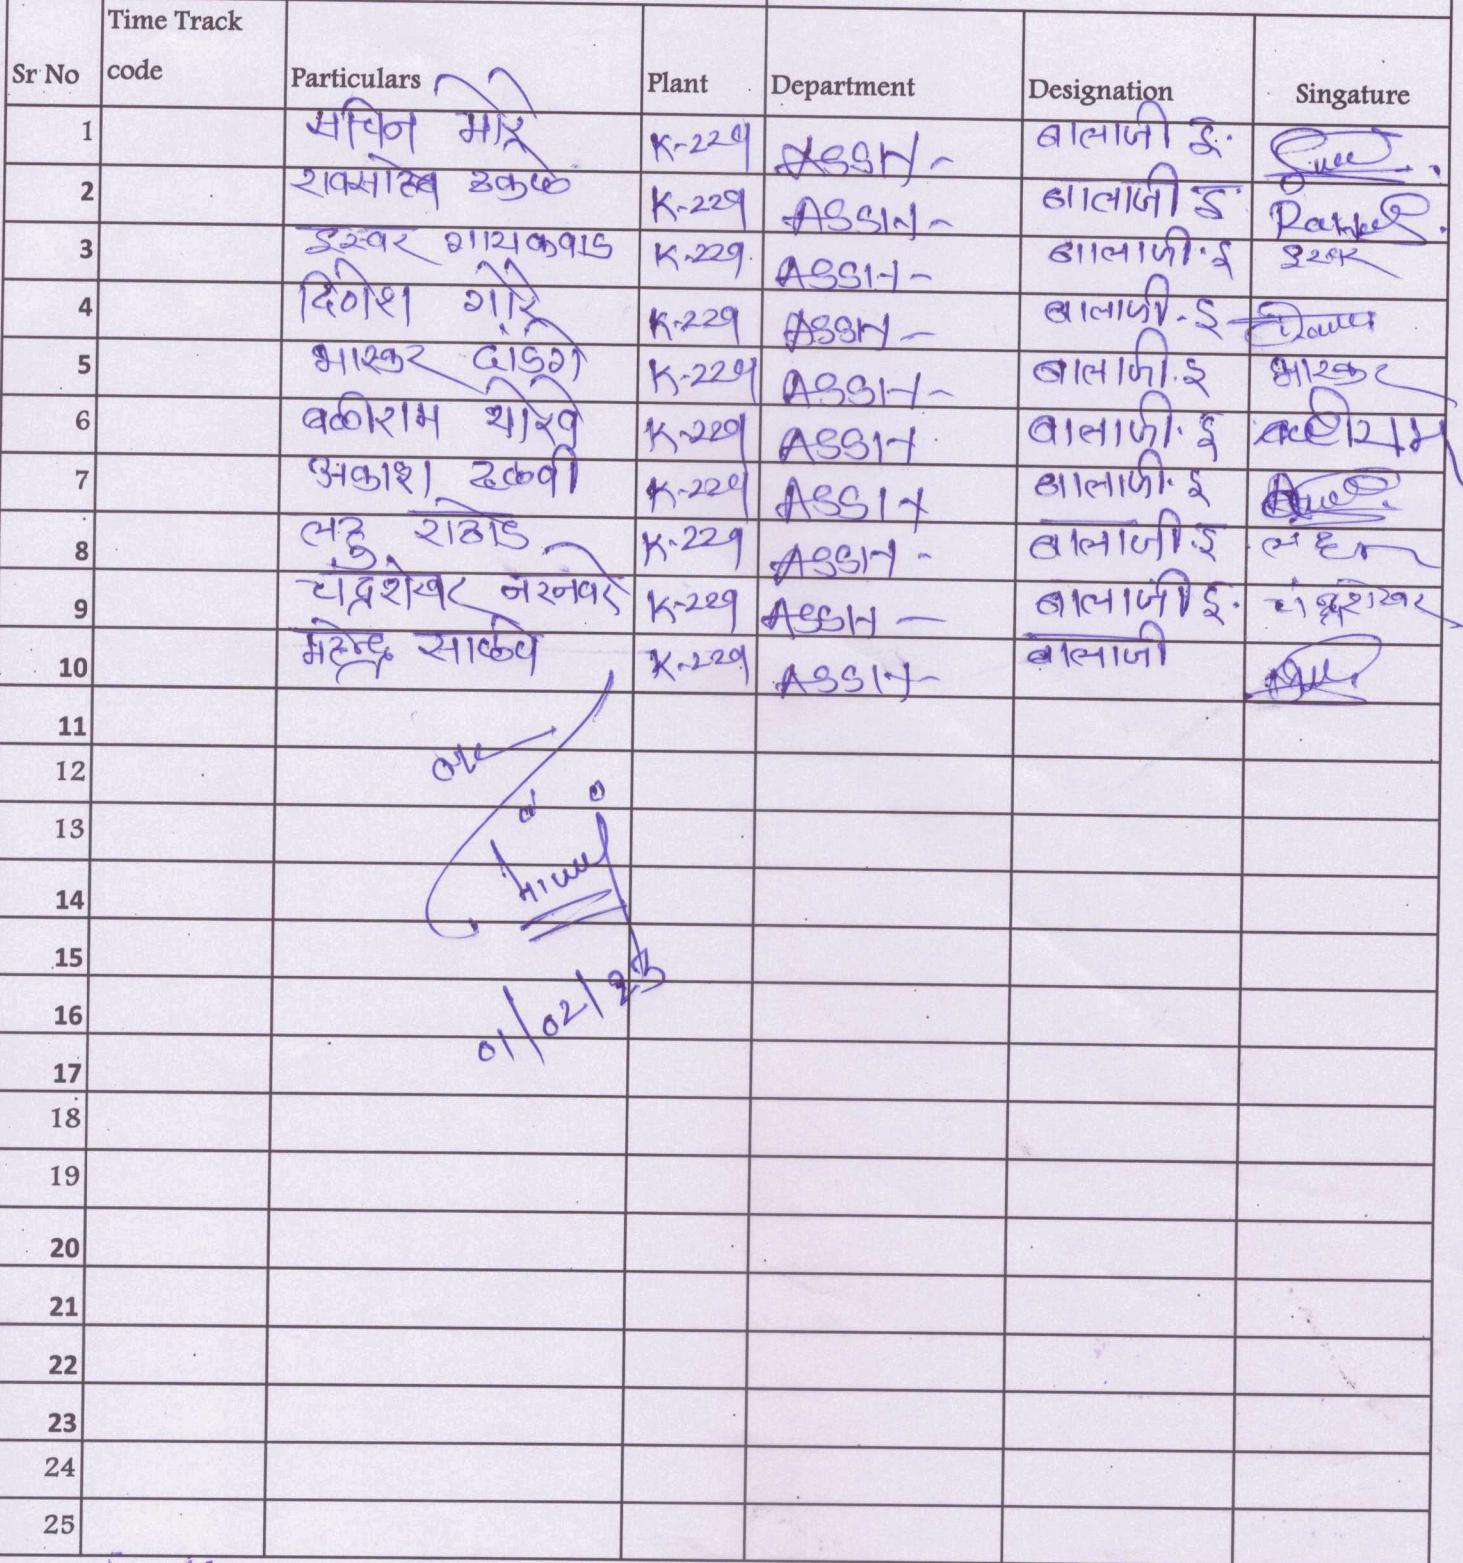 Sr No Time Track code Particulars Plant Department Designation Singature
1 सचिन मोरे K-229 ASSH- बालाजी ई.
2 रावसाहेब ढकळे K-229 ASSH- बालाजी ई
3 ईश्वर गायकवाड K-229 ASSH- बालाजी.ई ईश्वर
4 दिनेश मोरे K-229 ASSH- बालाजी.ई
5 भास्कर दांडगे K-229 ASSH- बालाजी.ई भास्कर
6 बळीराम थोरवे K-229 ASSH बालाजी.ई बळीराम
7 आकाश दळवी K-229 ASSH बालाजी.ई
8 लहु राठोड K-229 ASSH- बालाजी.ई
9 चंद्रशेखर नरनवरे K-229 ASSH- बालाजी ई. चंद्रशेखर
10 महेन्द्र साळवे K-229 ASSH- बालाजी
11
12
13
14
15
01/02/23
16
17
18
19
20
21
22
23
24
25